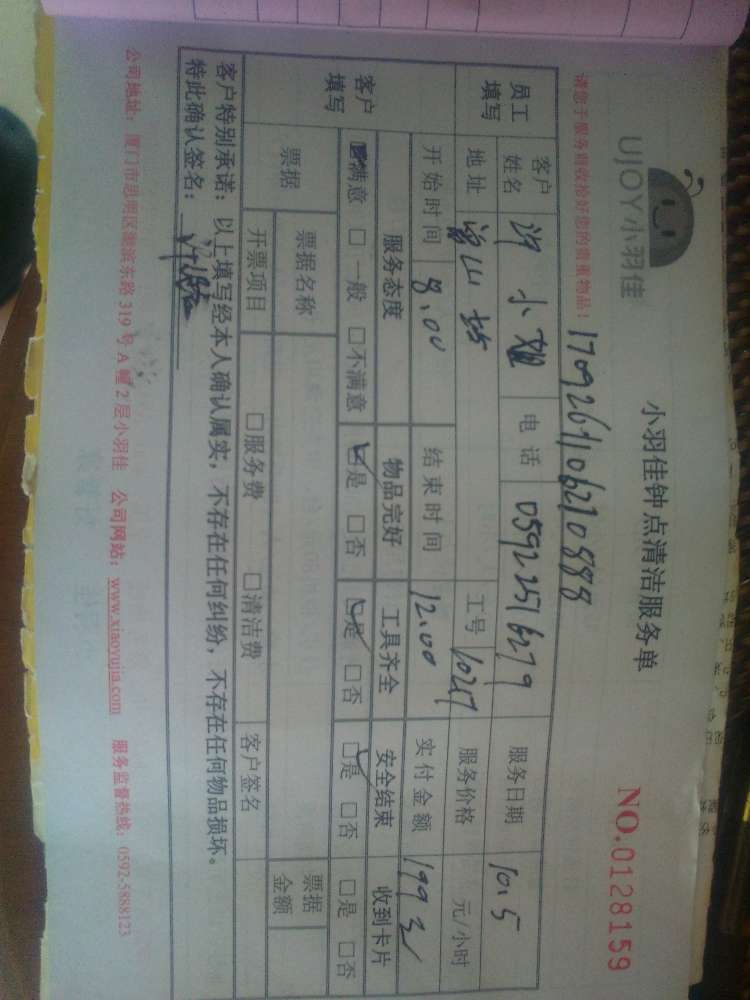 UJOY小羽佳
小羽佳钟点清洁服务单
NO.0128159
请您于服务前收拾好您的贵重物品！
1709261106210888
员工填写 客户姓名 许小姐 电话 05922516279 服务日期 10.5
地址 工号 10217 服务价格 元/小时
开始时间 8.00 结束时间 12.00 实付金额 199
客户填写 服务态度 物品完好 工具齐全 安全结束 收到卡片
满意 □一般 □不满意 ☑是 □否 ☑是 □否 ☑是 □否 □是 □否
票据 票据名称 票据金额
开票项目 □服务费 □清洁费 客户签名
客户特别承诺：以上填写经本人确认属实，不存在任何纠纷，不存在任何物品损坏。
特此确认签名：
公司地址：厦门市思明区湖滨东路319号A幢2层小羽佳 公司网站：www.xiaoyujia.com 服务监督热线：0592-5888123